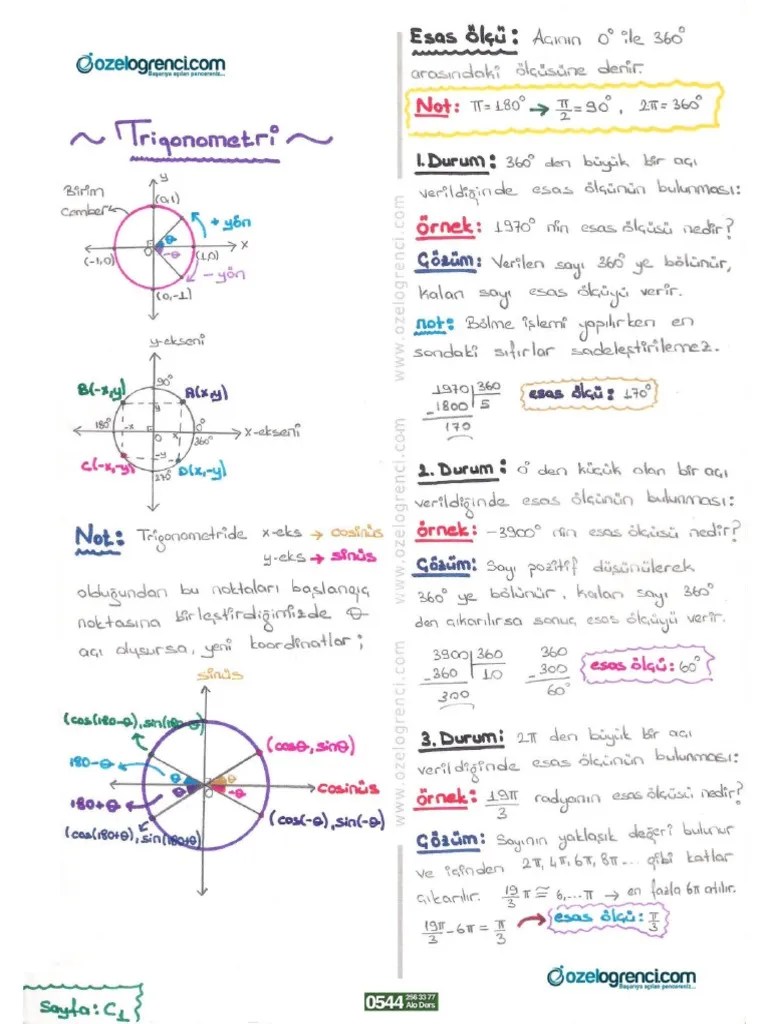 özelogrenci.com
Başarıya açılan pencereniz...
~ Trigonometri ~
Birim
Çember
y
(0,1)
+ yön
θ
x
(-1,0)
0
-θ
(1,0)
- yön
(0,-1)
y-ekseni
90°
B(-x,y)
A(x,y)
y
180°
-x
0
x
0°
360°
x-ekseni
-y
C(-x,-y)
270°
D(x,-y)
Not: Trigonometride x-eks → cosinüs
y-eks → sinüs
olduğundan bu noktaları başlangıç
noktasına birleştirdiğimizde θ
açı oluşursa, yeni koordinatlar;
sinüs
(cos(180-θ), sin(180-θ)
(cosθ, sinθ)
180-θ
θ
θ
cosinüs
θ
-θ
180+θ
(cos(180+θ), sin(180+θ)
(cos(-θ), sin(-θ)
Sayfa: C1
Esas Ölçü: Açının 0° ile 360°
arasındaki ölçüsüne denir.
Not: π=180° → π/2=90°, 2π=360°
1.Durum: 360° den büyük bir açı
verildiğinde esas ölçünün bulunması:
Örnek: 1970° nin esas ölçüsü nedir?
Çözüm: Verilen sayı 360° ye bölünür,
kalan sayı esas ölçüyü verir.
not: Bölme işlemi yapılırken en
sondaki sıfırlar sadeleştirilemez.
1970 | 360
-1800 | 5
170
esas ölçü: 170°
2. Durum: 0° den küçük olan bir açı
verildiğinde esas ölçünün bulunması:
Örnek: -3900° nin esas ölçüsü nedir?
Çözüm: Sayı pozitif düşünülerek
360° ye bölünür, kalan sayı 360°
den çıkarılırsa sonuç esas ölçüyü verir.
3900 | 360
-360 | 10
300
360
-300
60°
esas ölçü: 60°
3. Durum: 2π den büyük bir açı
verildiğinde esas ölçünün bulunması:
Örnek: 19π/3 radyonın esas ölçüsü nedir?
Çözüm: Sayının yaklaşık değeri bulunur
ve içinden 2π, 4π, 6π, 8π... gibi katlar
çıkarılır. 19/3 π ≅ 6,...π → en fazla 6π atılır.
19π/3 - 6π = π/3
esas ölçü: π/3
www.ozelogrenci.com
www.ozelogrenci.com
www.ozelogrenci.com
0544 256 33 77
Alo Ders
özelogrenci.com
Başarıya açılan pencereniz...